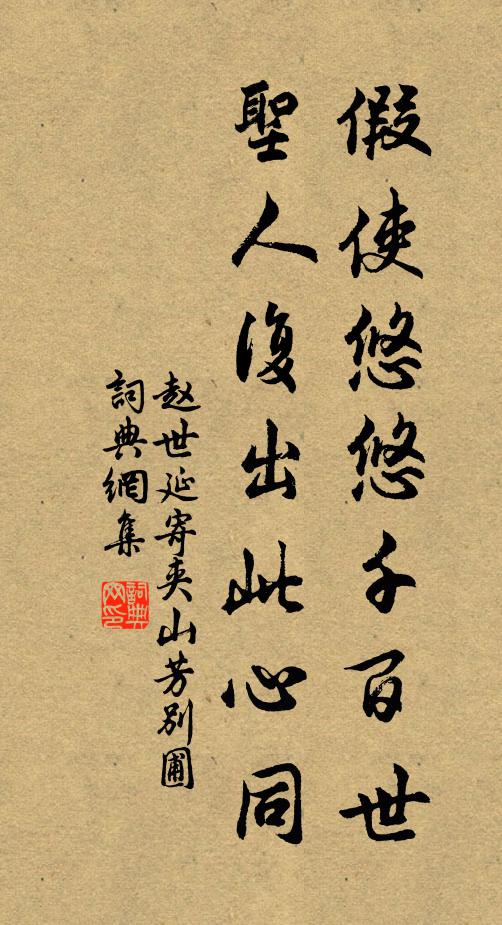 假使悠悠千百世
聖人復出此心同
赵世延寄夹山芳别圃
詞典網集
詞典网印